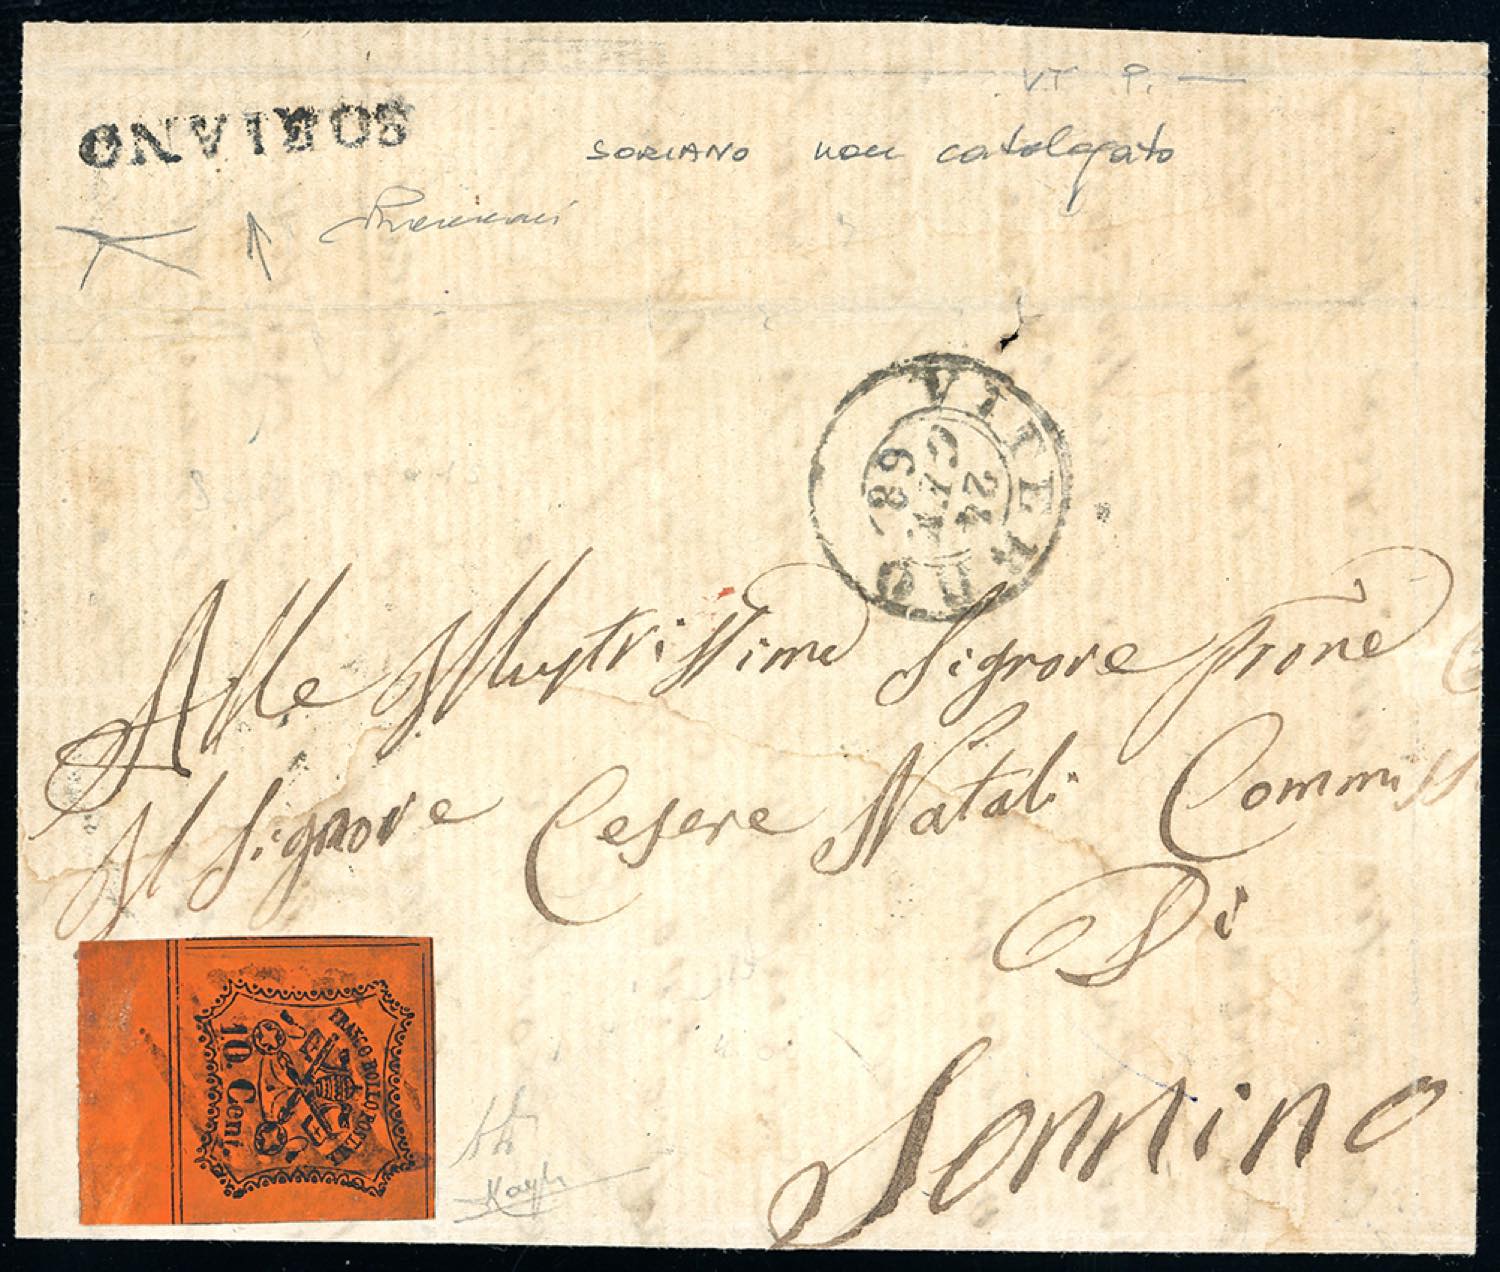 VT P. —
SORIANO
SORIANO non catalogato
VITERBO
24
68
Alle Illustrissimo Signore Prone
Il Signore Cesere Natali Commiss
Di
Sonnino
FRANCO BOLLO POSTALE
10. Cent.